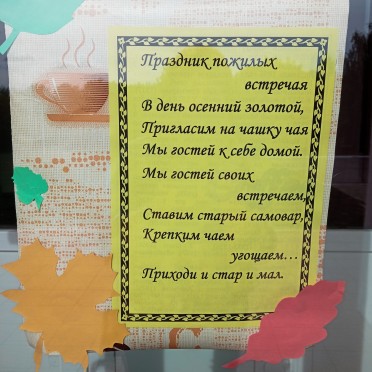 Праздник пожилых
встречая
В день осенний золотой,
Пригласим на чашку чая
Мы гостей к себе домой.
Мы гостей своих
встречаем,
Ставим старый самовар,
Крепким чаем
угощаем...
Приходи и стар и мал.